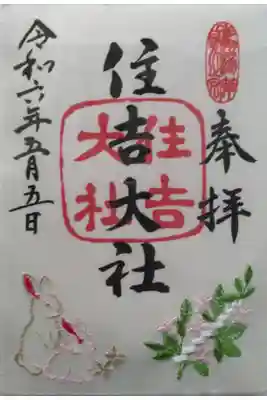 奉拝
住吉大社
住吉
大社
令和六年五月五日